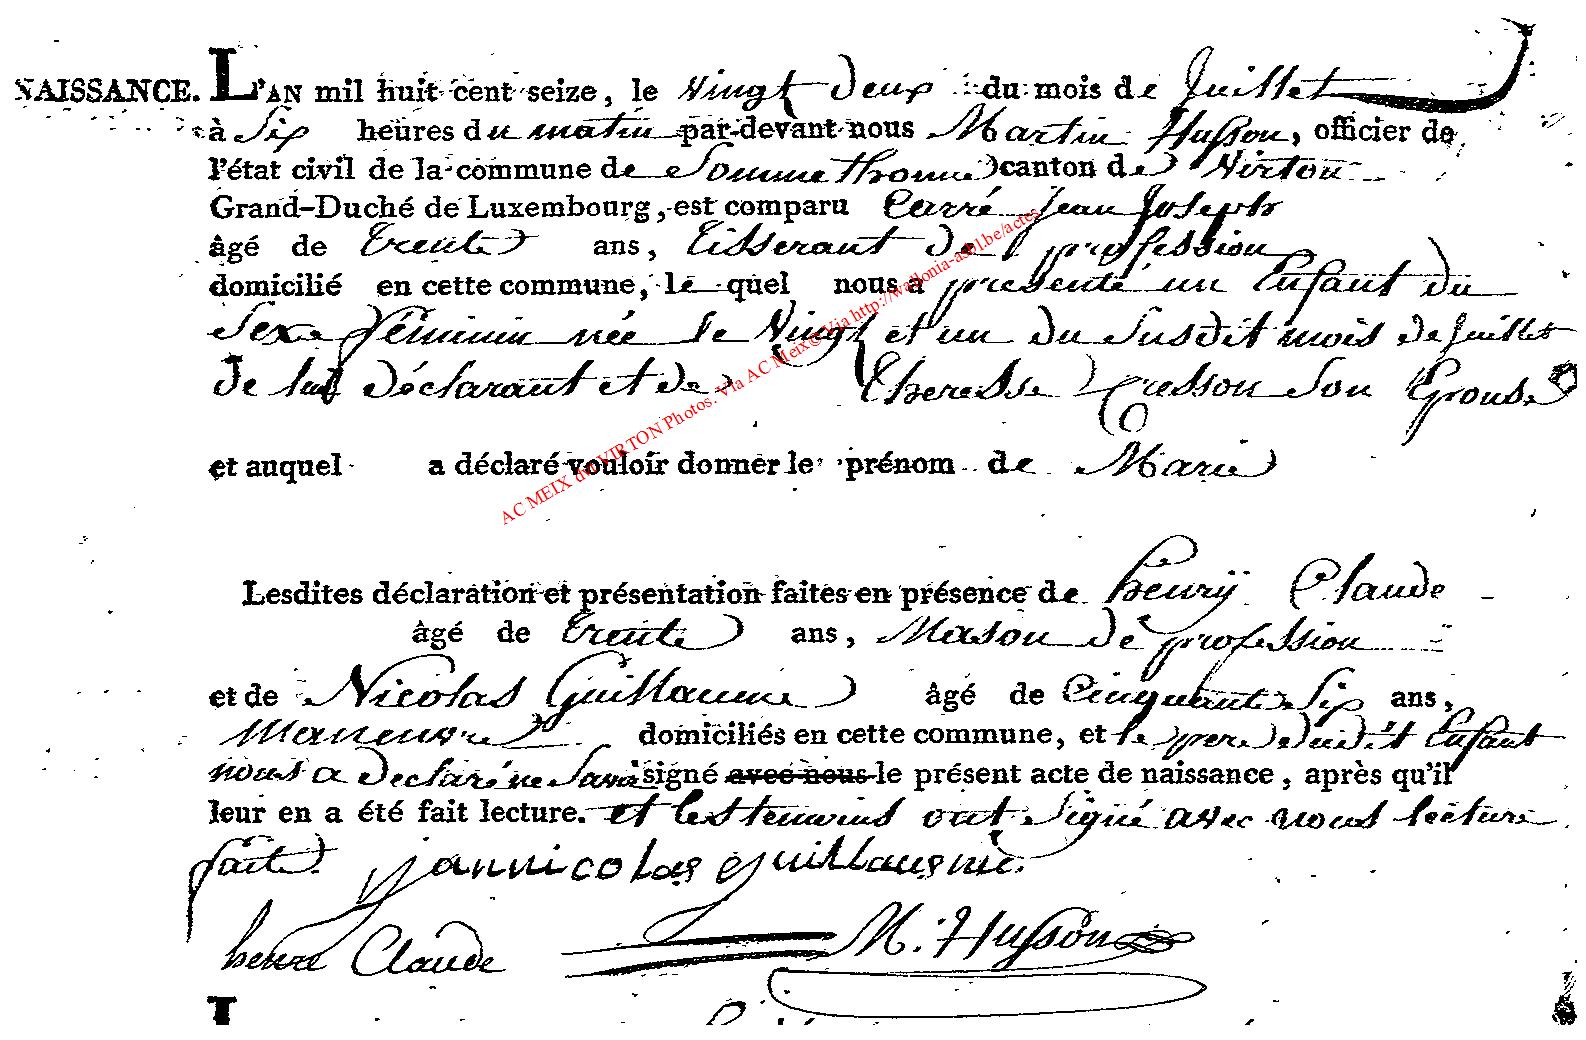 NAISSANCE. L'AN mil huit cent seize, le Vingt deux du mois de Juillet
à Six heures du matin par-devant nous Martin Husson, officier de
l'état civil de la commune de Sommethonne canton de Virton
Grand-Duché de Luxembourg, est comparu Carré Jean Joseph
âgé de trente ans, tisserant de profession
domicilié en cette commune, le quel nous a présenté un Enfant du
Sexe féminin née le Vingt et un du susdit mois de Juillet
de lui déclarant et de Theresse Cresson son Epouse
et auquel a déclaré vouloir donner le prénom de Marie
Lesdites déclaration et présentation faites en présence de henrÿ Claude
âgé de trente ans, Mason de profession
et de Nicolas Guillaume âgé de Cinquante Six ans,
Maneuvre domiciliés en cette commune, et le pere dudit Enfant
nous a déclaré ne savoir signé avec nous le présent acte de naissance, après qu'il
leur en a été fait lecture. et les temoins ont signé avec nous lecture
faite. jannicolas guillaume.
henri Claude M. Husson
AC MEIX dvt VIRTON Photos. Via AC Meix © Via http://wallonia-asbl.be/actes